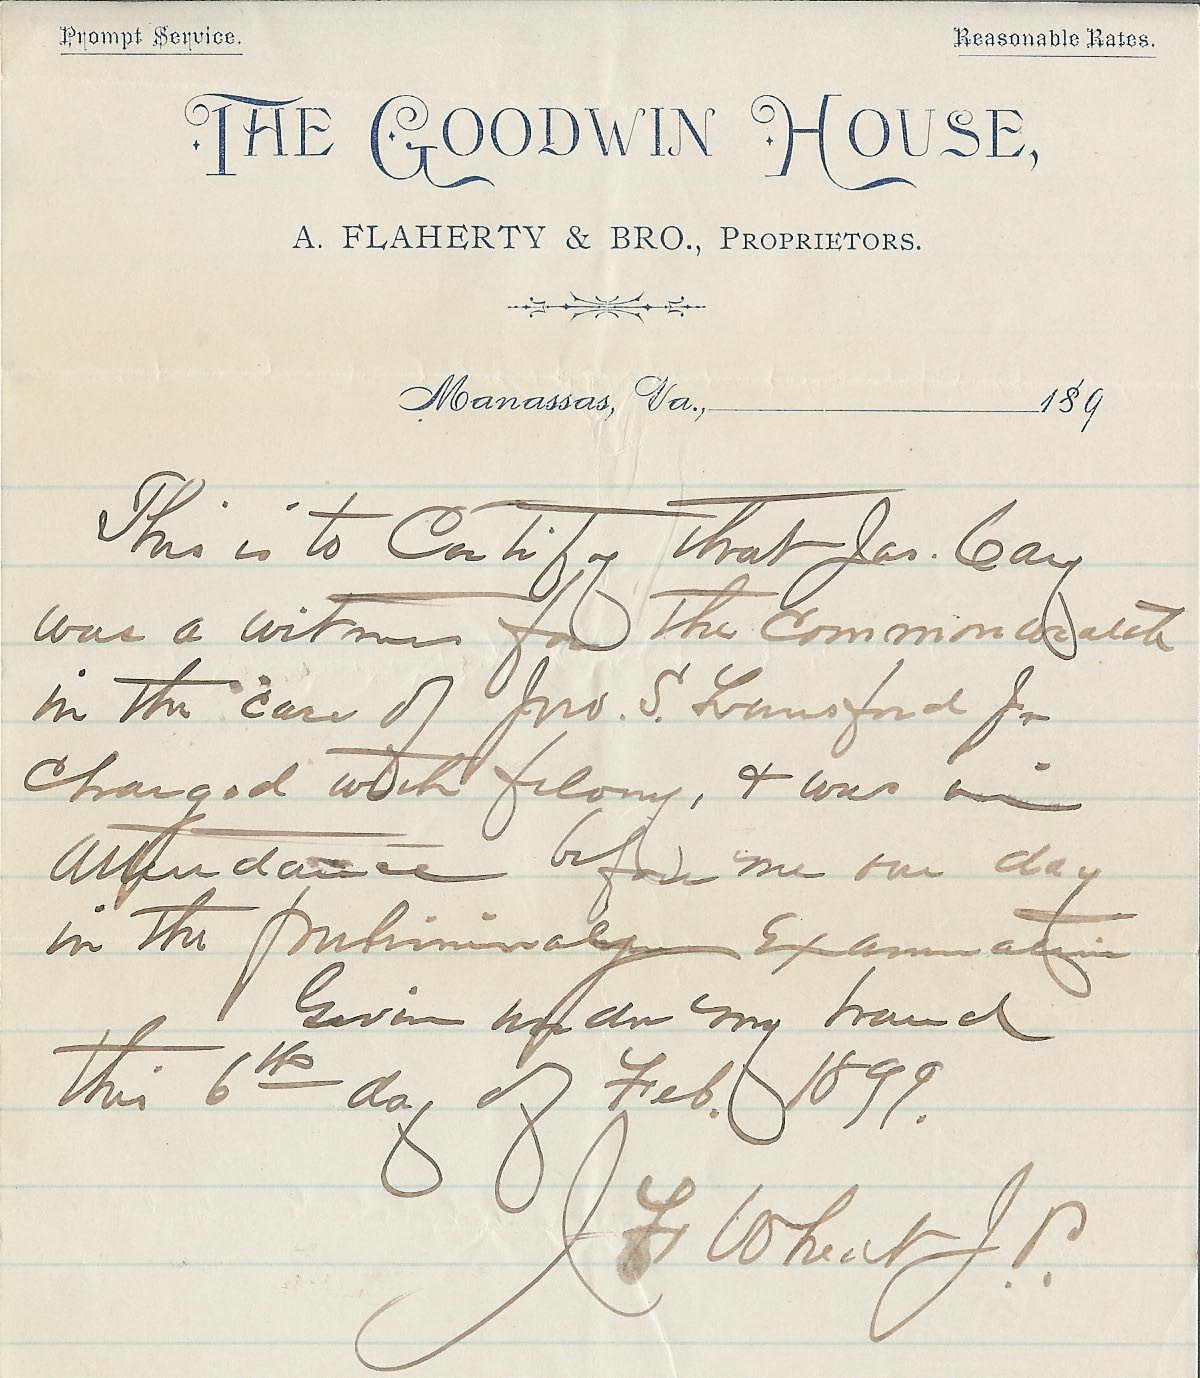 Prompt Service.
Reasonable Rates.
THE GOODWIN HOUSE,
A. FLAHERTY & BRO., PROPRIETORS.
Manassas, Va., 189
This is to Certify that Jas. Cary
was a witness for the Commonwealth
in the case of Jno. S. Lunsford Jr
Charged with felony, & was in
Attendance before me one day
in the preliminary Examination
Given under my hand
this 6th day of Feb. 1899.
J F Wheat J.P.